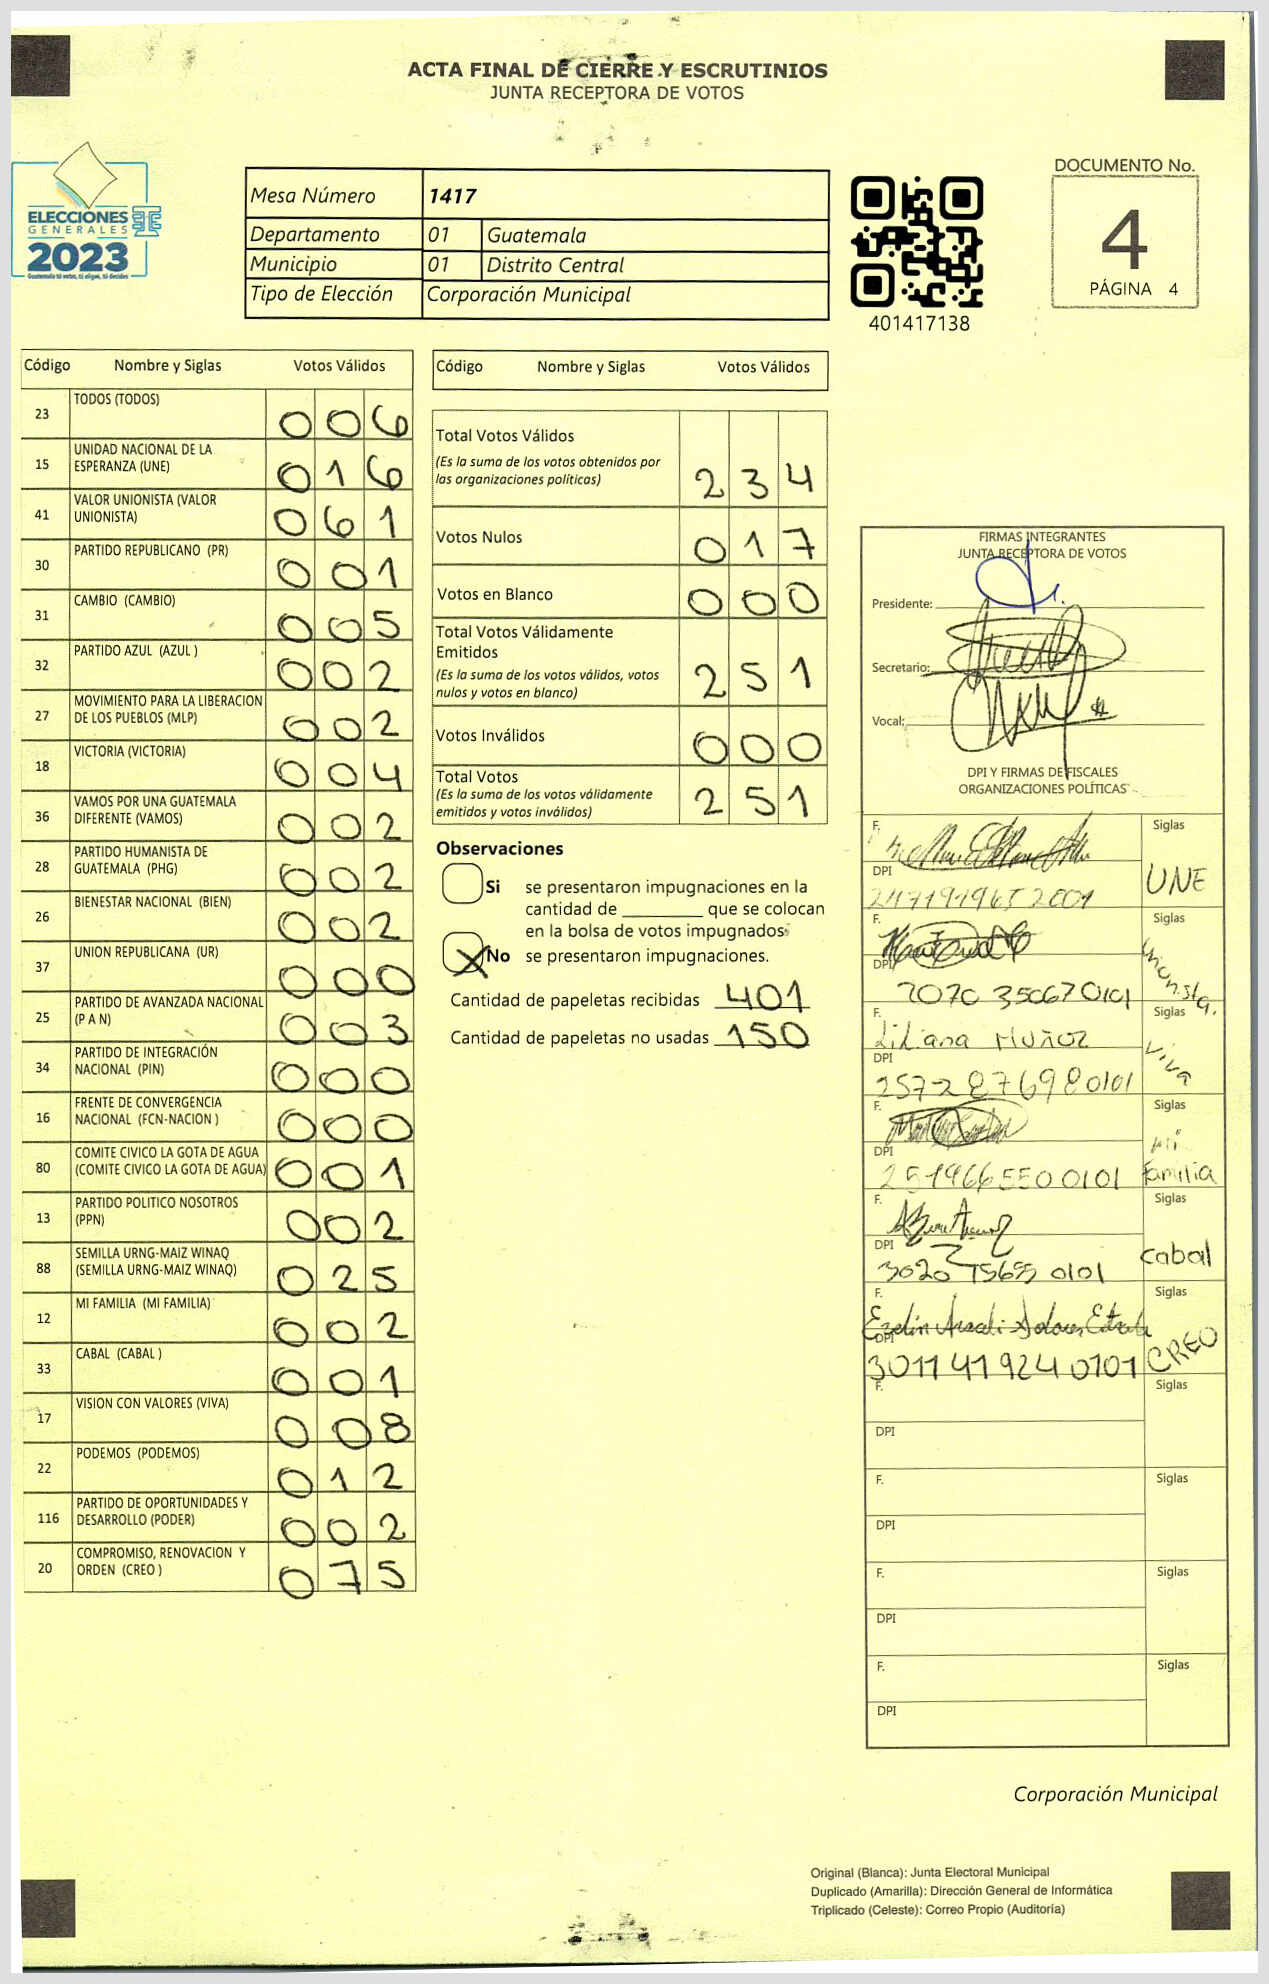 ACTA FINAL DE CIERRE Y ESCRUTINIOS
JUNTA RECEPTORA DE VOTOS
ELECCIONES
GENERALES
2023
Guatemala tú votas, tú eliges, tú decides
Mesa Número 1417
Departamento 01 Guatemala
Municipio 01 Distrito Central
Tipo de Elección Corporación Municipal
401417138
DOCUMENTO No.
4
PÁGINA 4
Código Nombre y Siglas Votos Válidos
23 TODOS (TODOS) 006
15 UNIDAD NACIONAL DE LA
ESPERANZA (UNE) 016
41 VALOR UNIONISTA (VALOR
UNIONISTA) 061
30 PARTIDO REPUBLICANO (PR) 001
31 CAMBIO (CAMBIO) 005
32 PARTIDO AZUL (AZUL ) 002
27 MOVIMIENTO PARA LA LIBERACION
DE LOS PUEBLOS (MLP) 002
18 VICTORIA (VICTORIA) 004
36 VAMOS POR UNA GUATEMALA
DIFERENTE (VAMOS) 002
28 PARTIDO HUMANISTA DE
GUATEMALA (PHG) 002
26 BIENESTAR NACIONAL (BIEN) 002
37 UNION REPUBLICANA (UR) 000
25 PARTIDO DE AVANZADA NACIONAL
(P A N) 003
34 PARTIDO DE INTEGRACIÓN
NACIONAL (PIN) 000
16 FRENTE DE CONVERGENCIA
NACIONAL (FCN-NACION ) 000
80 COMITE CIVICO LA GOTA DE AGUA
(COMITE CIVICO LA GOTA DE AGUA) 001
13 PARTIDO POLITICO NOSOTROS
(PPN) 002
88 SEMILLA URNG-MAIZ WINAQ
(SEMILLA URNG-MAIZ WINAQ) 025
12 MI FAMILIA (MI FAMILIA) 002
33 CABAL (CABAL ) 001
17 VISION CON VALORES (VIVA) 008
22 PODEMOS (PODEMOS) 012
116 PARTIDO DE OPORTUNIDADES Y
DESARROLLO (PODER) 002
20 COMPROMISO, RENOVACION Y
ORDEN (CREO ) 075
Código Nombre y Siglas Votos Válidos
Total Votos Válidos
(Es la suma de los votos obtenidos por
las organizaciones políticas) 234
Votos Nulos 017
Votos en Blanco 000
Total Votos Válidamente
Emitidos
(Es la suma de los votos válidos, votos
nulos y votos en blanco) 251
Votos Inválidos 000
Total Votos
(Es la suma de los votos válidamente
emitidos y votos inválidos) 251
Observaciones
Si se presentaron impugnaciones en la
cantidad de ________ que se colocan
en la bolsa de votos impugnados
X No se presentaron impugnaciones.
Cantidad de papeletas recibidas 401
Cantidad de papeletas no usadas 150
FIRMAS INTEGRANTES
JUNTA RECEPTORA DE VOTOS
Presidente:
Secretario:
Vocal:
DPI Y FIRMAS DE FISCALES
ORGANIZACIONES POLÍTICAS
F. Siglas
DPI UNE
F. Siglas
DPI
2070 35067 0101 Unionista.
F. Liliana MUÑOZ Siglas
DPI Viva
2572 87698 0101
F. Siglas
DPI Mi
2519665500101 Familia
F. Siglas
DPI Cabal
F. Siglas
DPI
3011 41 924 0101 CREO
F. Siglas
DPI
F. Siglas
DPI
F. Siglas
DPI
F. Siglas
DPI
Corporación Municipal
Original (Blanca): Junta Electoral Municipal
Duplicado (Amarilla): Dirección General de Informática
Triplicado (Celeste): Correo Propio (Auditoría)